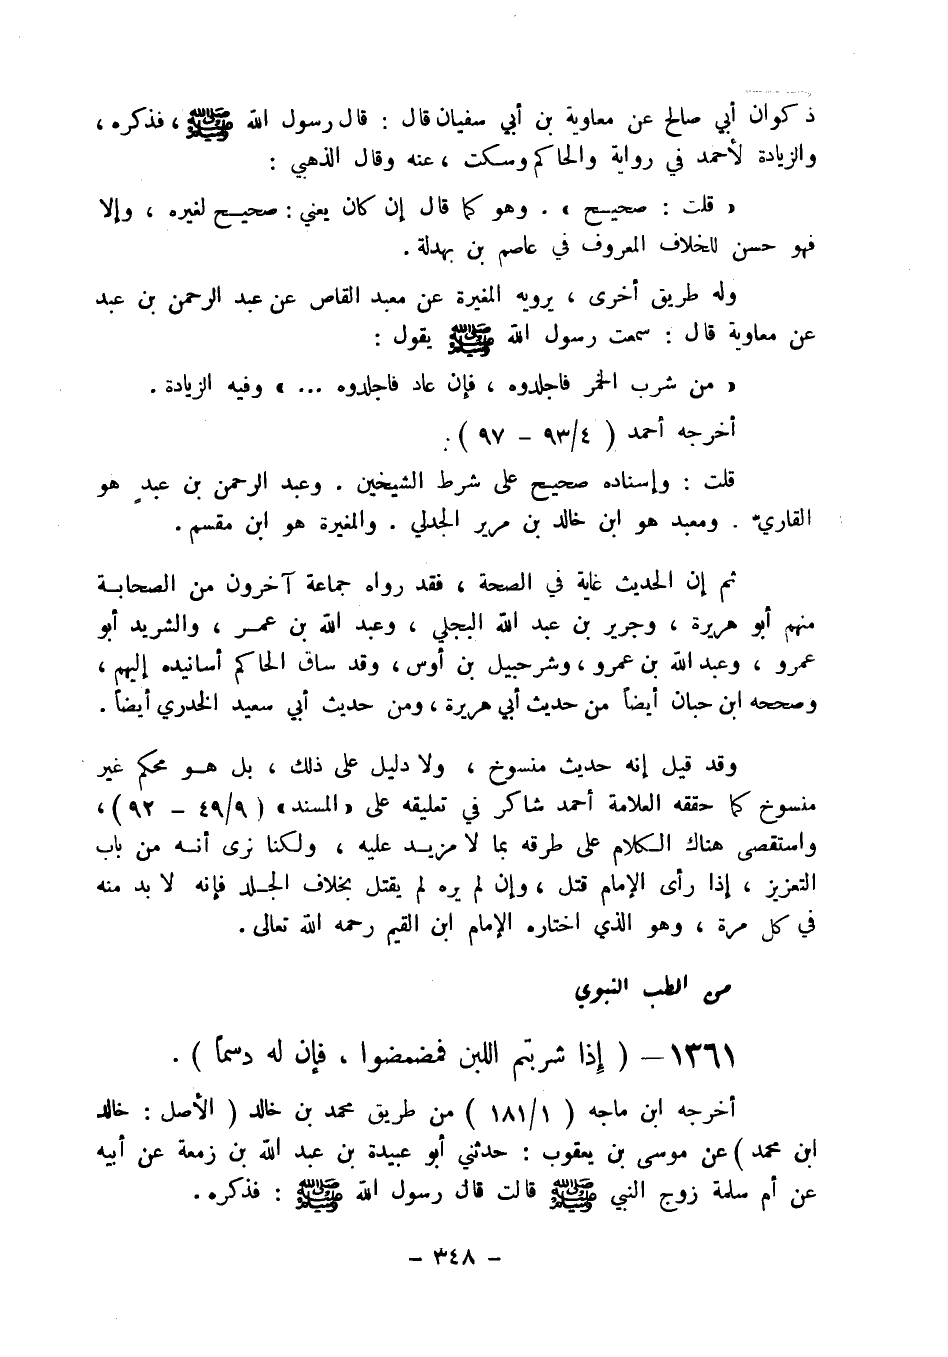 ذكوان أبي صالح عن معاوية بن أبي سفيان قال : قال رسول الله ﷺ ، فذكره ،
والزيادة لأحمد في رواية والحاكم وسكت ، عنه وقال الذهبي :
« قلت : صحيح » . وهو كما قال إن كان يعني : صحيح لغيره ، وإلا
فهو حسن للخلاف المعروف في عاصم بن بهدلة .
وله طريق أخرى ، يرويه المغيرة عن معبد القاص عن عبد الرحمن بن عبد
عن معاوية قال : سمعت رسول الله ﷺ يقول :
« من شرب الخمر فاجلدوه ، فإن عاد فاجلدوه ... » وفيه الزيادة .
أخرجه أحمد ( ٤/٩٣ - ٩٧ ) .
قلت : وإسناده صحيح على شرط الشيخين . وعبد الرحمن بن عبدٍ هو
القاريّ . ومعبد هو ابن خالد بن مرير الجدلي . والمغيرة هو ابن مقسم .
ثم إن الحديث غاية في الصحة ، فقد رواه جماعة آخرون من الصحابة
منهم أبو هريرة ، وجرير بن عبد الله البجلي ، وعبد الله بن عمر ، والشريد أبو
عمرو ، وعبد الله بن عمرو ، وشرحبيل بن أوس ، وقد ساق الحاكم أسانيده إليهم ،
وصححه ابن حبان أيضاً من حديث أبي هريرة ، ومن حديث أبي سعيد الخدري أيضاً .
وقد قيل إنه حديث منسوخ ، ولا دليل على ذلك ، بل هو محكم غير
منسوخ كما حققه العلامة أحمد شاكر في تعليقه على «المسند» ( ٩/٤٩ - ٩٢ ) ،
واستقصى هناك الكلام على طرقه بما لا مزيد عليه ، ولكنا نرى أنه من باب
التعزيز ، إذا رأى الإمام قتل ، وإن لم يره لم يقتل بخلاف الجلد فإنه لا بد منه
في كل مرة ، وهو الذي اختاره الإمام ابن القيم رحمه الله تعالى .
من الطب النبوي
١٣٦١ - ( إذا شربتم اللبن فمضمضوا ، فإن له دسماً ) .
أخرجه ابن ماجه ( ١/١٨١ ) من طريق محمد بن خالد ( الأصل : خالد
ابن محمد ) عن موسى بن يعقوب : حدثني أبو عبيدة بن عبد الله بن زمعة عن أبيه
عن أم سلمة زوج النبي ﷺ قالت قال رسول الله ﷺ : فذكره .
- ٣٤٨ -